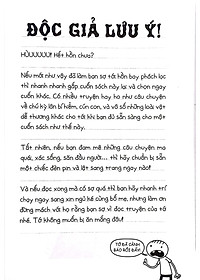 ĐỘC GIẢ LƯU Ý!
HÙUUUUU! Hết hồn chưa?
Nếu mới như vậy đã làm bạn sợ tới hồn bay phách lạc
thì nhanh nhanh gấp cuốn sách này lại và chọn ngay
cuốn khác. Có nhiều truyện hay ho như câu chuyện
về chú kỳ lân bí hiểm, cún con, và vô số những loài vật
dễ thương khác cho tới khi bạn đủ sẵn sàng cho một
cuốn sách như thế này.
Tất nhiên, nếu bạn đam mê những câu chuyện ma
quái, xác sống, săn đầu người... thì hãy chuẩn bị sẵn
một chiếc đèn pin và lật sang trang ngay nào!
Và nếu đọc xong mà có sợ quá thì bạn hãy nhanh trí
chạy ngay sang xin ngủ ké cùng bố mẹ, nhưng làm ơn
đừng mách với họ rằng bạn sợ vì đọc truyện của tớ
nhé. Tớ không muốn bị ăn mắng đâu!
TỚ ĐÃ CẢNH
BÁO RỒI ĐẤY!